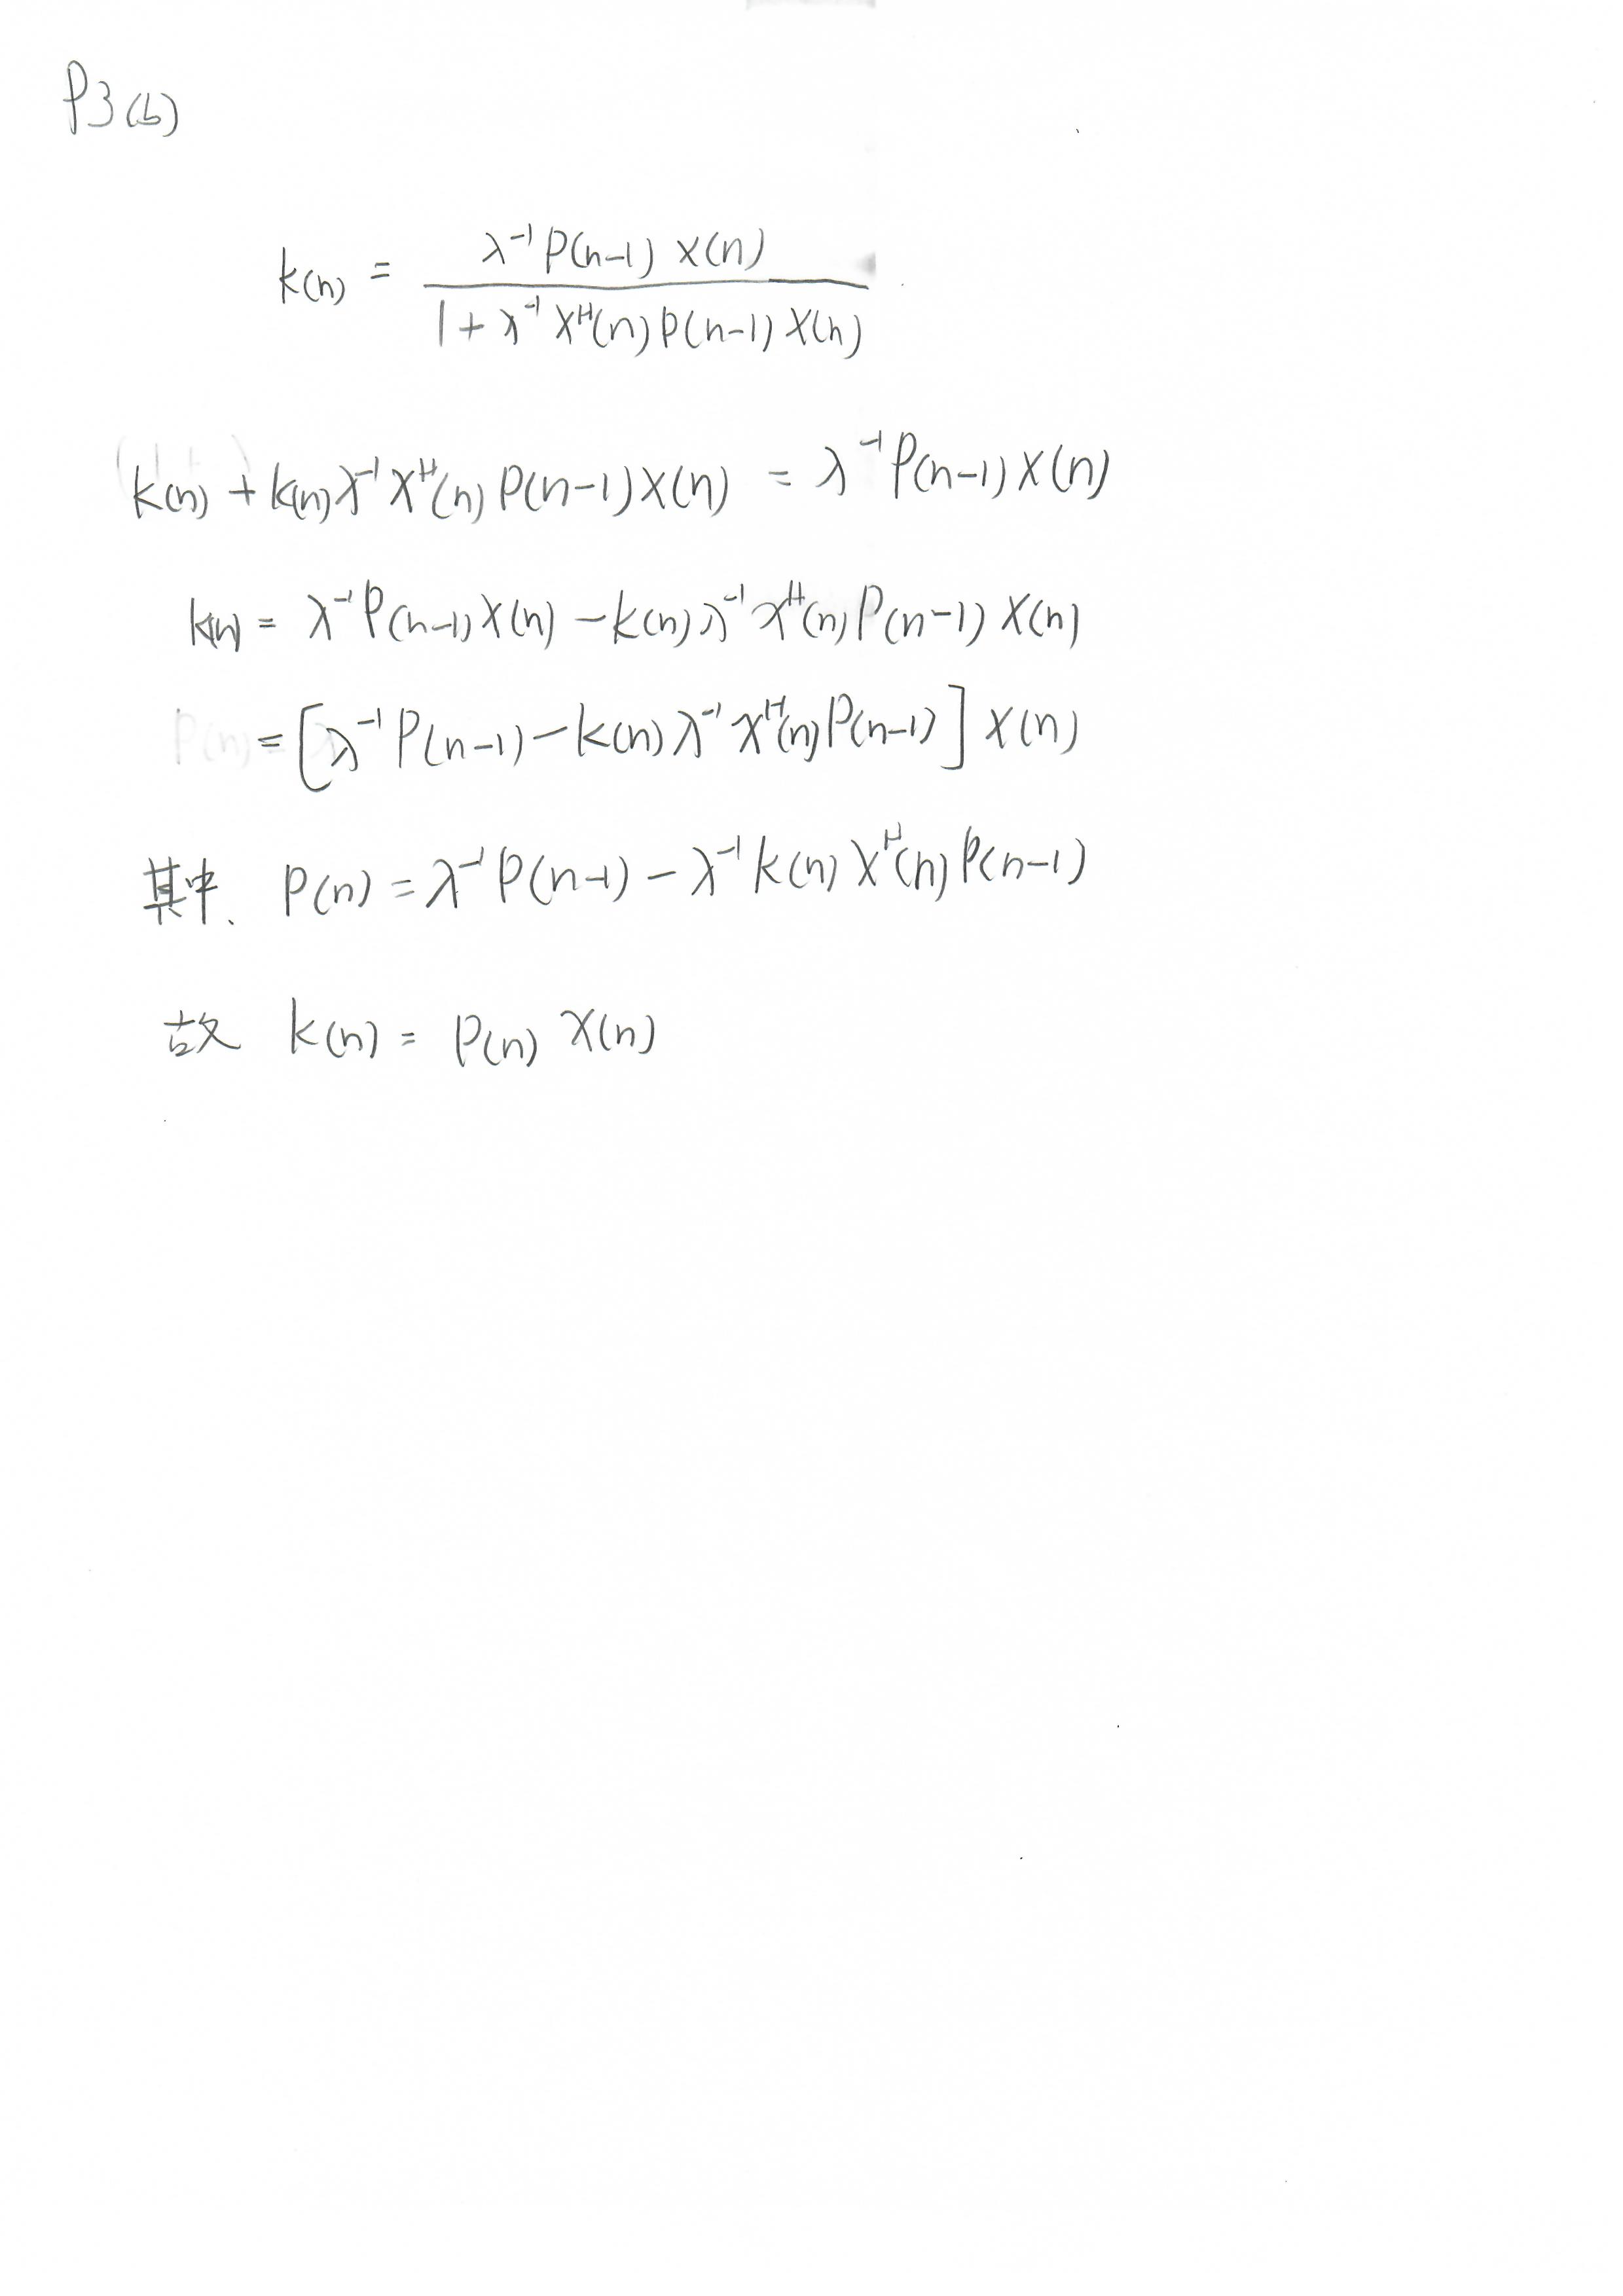 P3(b)
k(n) = \frac{λ⁻¹ P(n-1) X(n)}{1 + λ⁻¹ Xᴴ(n) P(n-1) X(n)}
k(n) + k(n) λ⁻¹ Xᴴ(n) P(n-1) X(n) = λ⁻¹ P(n-1) X(n)
k(n) = λ⁻¹ P(n-1) X(n) - k(n) λ⁻¹ Xᴴ(n) P(n-1) X(n)
= [λ⁻¹ P(n-1) - k(n) λ⁻¹ Xᴴ(n) P(n-1)] X(n)
其中、 P(n) = λ⁻¹ P(n-1) - λ⁻¹ k(n) Xᴴ(n) P(n-1)
故 k(n) = P(n) X(n)